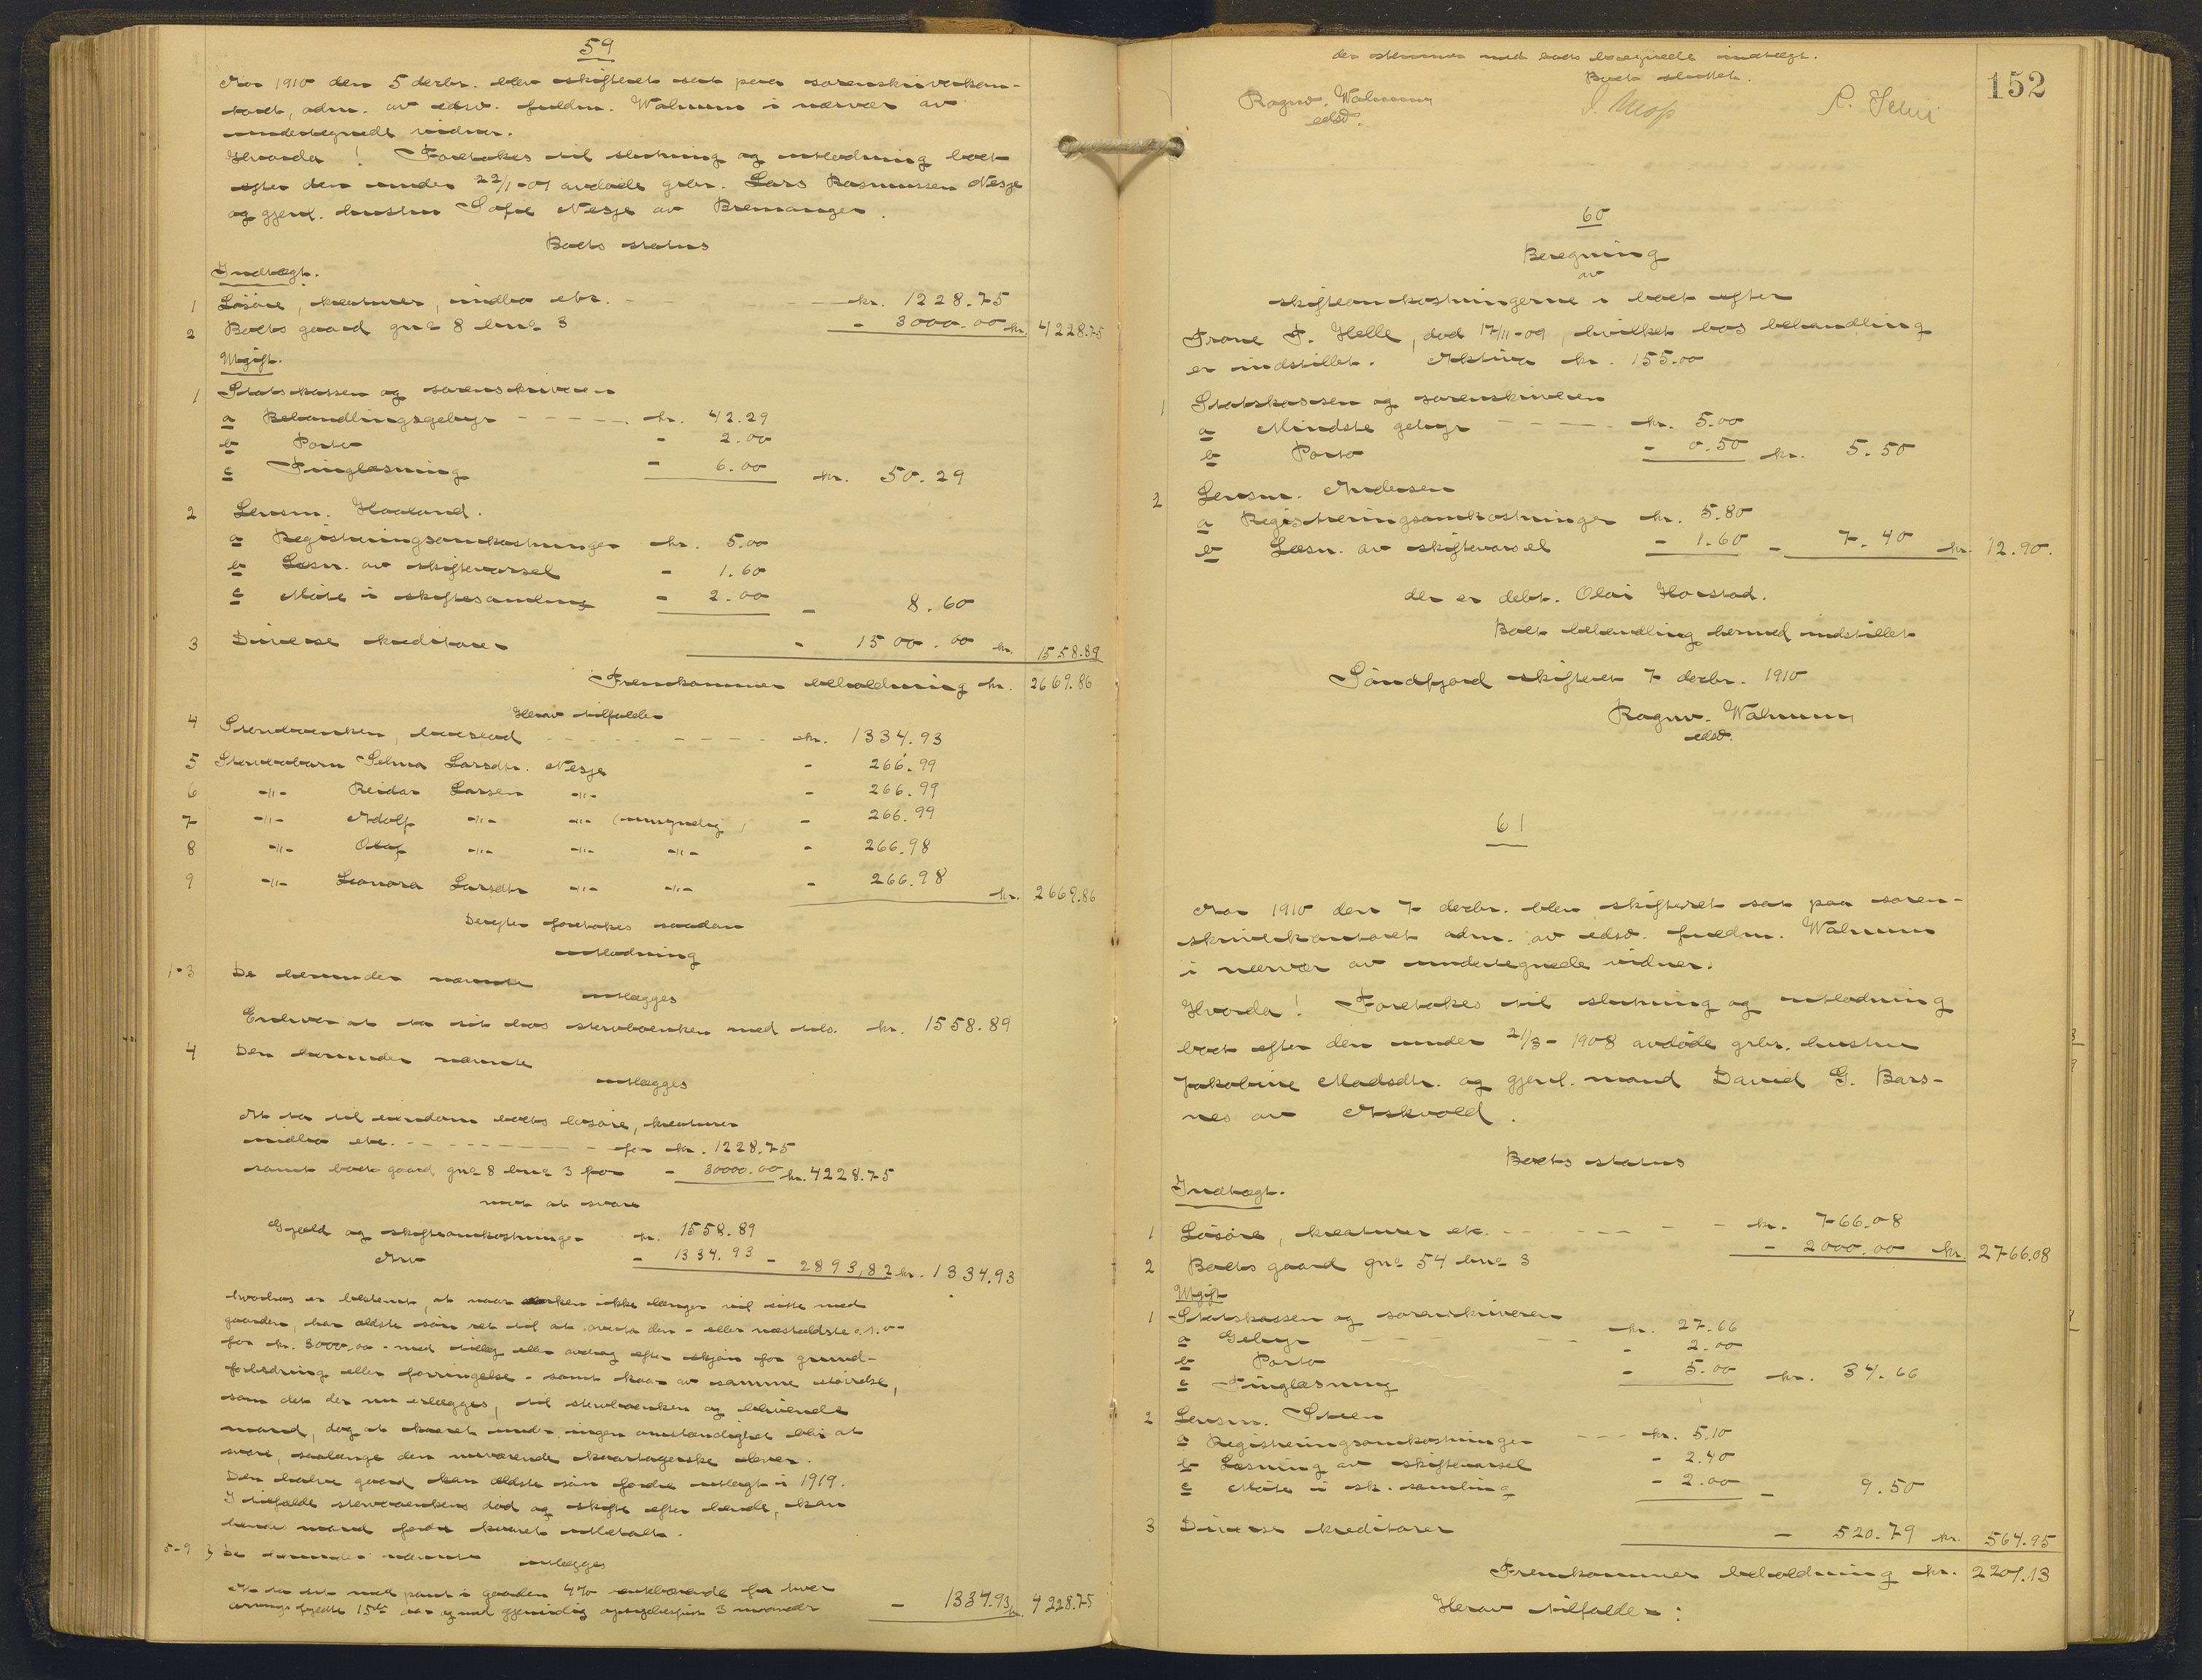 59
Aar 1910 den 5 decbr. blev skifteret sat paa sorenskriverkon-
toret, adm. av edsv. fuldm. Walnum i nærvær av
undertegnede vidner.
Hvorda! Foretokes til slutning og utlodning boet
efter den under 22/1-07 avdøde grbr. Lars Rasmussen Nesje
og gjenl. hustru Sofie Nesje av Bremanger.
Boets status
Indtægt.
1 Løsøre, kreaturer, indbo etc. kr. 1228.75
2 Boets gaard gno 8 bno 3 - 3000.00 kr. 4228.75
Utgift.
1 Statskassen og sorenskriveren
a Behandlingsgebyr kr. 42.29
b Porto - 2.00
c Tinglæsning - 6.00 kr. 50.29
2 Lensm. Haaland.
a Registreringsomkostninger kr. 5.00
b Læsn. av skiftevarsel - 1.60
c Møte i skiftesamling - 2.00 - 8.60
3 Diverse kreditorer - 1500.00 kr. 1558.89
Fremkommer beholdning kr. 2669.86
Herav tilfalder
4 Stervboenken, boeslod kr. 1334.93
5 Stervbobarn Selma Larsdtr. Nesje - 266.99
6 -"- Reidar Larsen -"- - 266.99
7 -"- Adolf -"- -"- (umyndig) - 266.99
8 -"- Olaf -"- -"- -"- - 266.98
9 -"- Leonora Larsdtr -"- -"- - 266.98 kr. 2669.86
Derefter foretokes saadan
utlodning
1-3 De herunder nævnte
utlægges
Enhver at ta sit hos stervboenken med tils. kr. 1558.89
4 Den herunder nævnte
utlægges
At ta til eiendom boets løsøre, kreaturer
indbo etc. for kr. 1228.75
samt boets gaard gno 8 bno 3 for - 30000.00 kr. 4228.75
mot at svare
Gjæld og skifteomkostninger kr. 1558.89
Arv - 1334.93 - 2893,82 kr. 1334.93
hvorhos er bestemt, at naar enken ikke længer vil sitte med
gaarden, har ældste søn ret til at overta den - eller næstældste o.s.v.
for kr. 3000.00 - med tillæg eller avdrag efter skjøn for grund-
forbedring eller forringelse - samt kaar av samme størrelse,
som det der nu erlægges, til stervboenken og
mand, dog at kaaret under ingen omstændighet blir at
svare, saalænge den nuværende kaartagerske lever.
Den halve gaard kan ældste søn fordre utlagt i 1919.
I tilfælde stervboenkens død og skifte efter hende, kan
hendes mand fordre kaaret utbetalt.
5-9 De herunder nævnte utlægges
At ta sit med pant i gaarden 4% rentebærende fra hver
fyldte 15de aar og med gjensidig opsigelsesfrist 3 maaneder - 1334.93 kr. 4228.75
152
der stemmer med boets beregnede indtægt.
Boet sluttet.
Ragnv. Walnum
edsv.
60
Beregning
av
skifteomkostningerne i boet efter
Trone T. Helle, død 17/11-09, hvilket bos behandling
er indstillet. Aktiva kr. 155.00
1 Statskassen og sorenskriveren
a Mindste gebyr kr. 5.00
b Porto - 0.50 kr. 5.50
2 Lensm. Andersen
a Registreringsomkostninger kr. 5.80
b Læsn. av skiftevarsel - 1.60 - 7.40 kr. 12.90.
der er debt. Olai Horstad.
Boets behandling hermed indstillet
Søndfjord skifteret 7 decbr. 1910
Ragnv. Walnum
edsv.
61
Aar 1910 den 7 decbr. blev skifteret sat paa soren-
skriverkontoret adm. av edsv. fuldm. Walnum
i nærvær av undertegnede vidner.
Hvorda! Foretokes til slutning og utlodning
boet efter den under 21/3-1908 avdøde grbr. hustru
Jakobine Madsdtr. og gjenl. mand David G. Bars-
nes av Askvold.
Boets status
Indtægt.
1 Løsøre, kreaturer etc. kr. 766.08
2 Boets gaard gno 54 bno 3 - 2000.00 kr. 2766.08
Utgift
1 Statskassen og sorenskriveren
a Gebyr kr. 27.66
b Porto - 2.00
c Tinglæsning - 5.00 kr. 34.66
2 Lensm. Steen
a Registreringsomkostninger kr. 5.10
b Læsning av skiftevarsel - 2.40
c Møte i sk. samling - 2.00 - 9.50
3 Diverse kreditorer - 520.79 kr. 564.95
Fremkommer beholdning kr. 2201.13
Herav tilfalder: